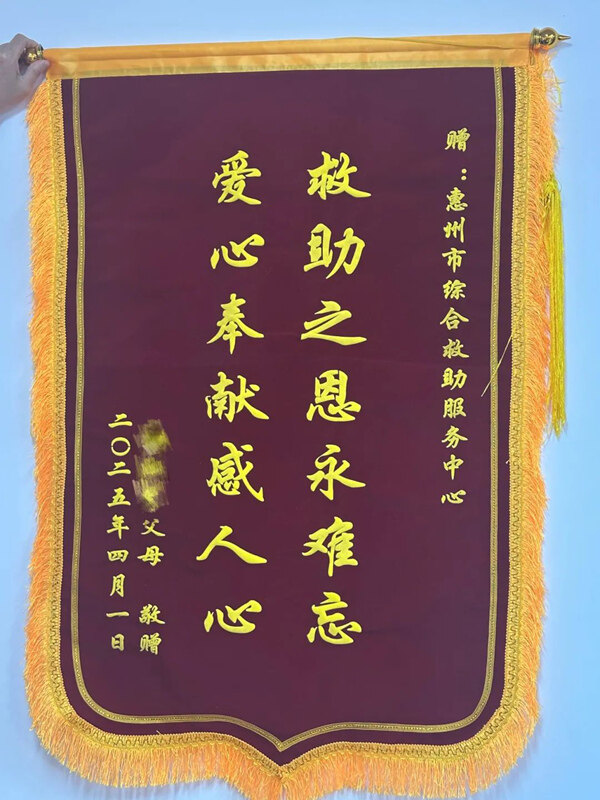 赠：惠州市综合救助服务中心
救助之恩永难忘
爱心奉献感人心
父母 敬赠
二〇二五年四月一日